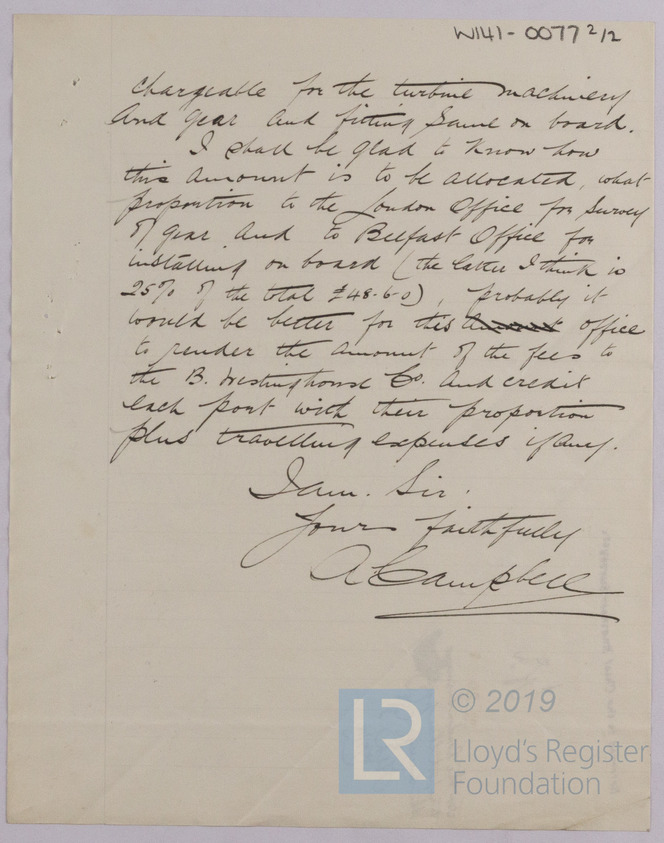 W141-0077 2/2
chargeable for the turbine machinery
and gear and fitting same on board.
I shall be glad to know how
this amount is to be allocated, what
proportion to the London Office for Survey
of gear and to Belfast Office for
installing on board (the latter I think is
25% of the total £48.6.0), probably it
would be better for this amount office
to render the amount of the fees to
the B. Westinghouse Co. and credit
each port with their proportion
plus travelling expenses if any.
I am. Sir.
Yours faithfully
A Campbell
LR
© 2019
Lloyd's Register
Foundation